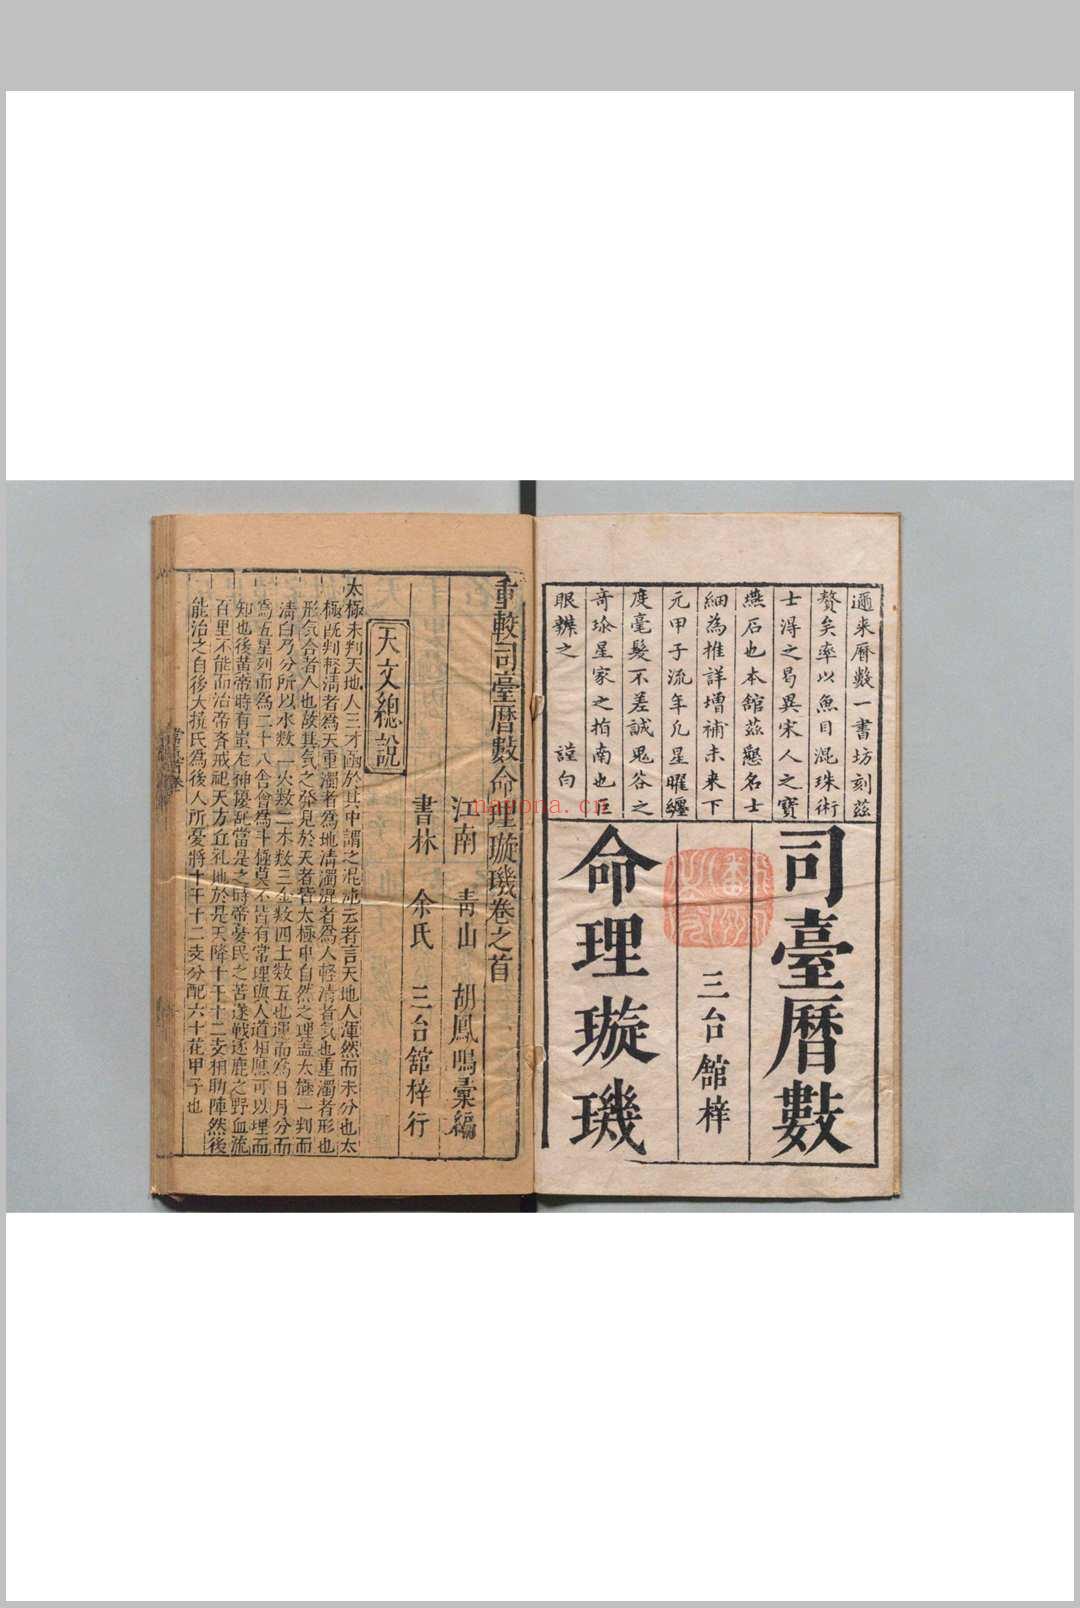 邇来曆數一書坊刻茲
贅矣率以魚目混珠術
士淂之曷異宋人之寶
燕石也本舘茲懇名士
細為推詳增補未来下
元甲子流年凢星曜纏
度毫髮不差誠鬼谷之
奇珎星家之指南也巨
眼辨之 謹白
司臺曆數
三台舘梓
命理璇璣
重較司臺曆數命理璇璣卷之首
江南 青山 胡鳳鳴彙編
書林 余氏 三台舘梓行
天文總說
太極未判天地人三才函於其中謂之混沌云者言天地人渾然而未分也太
極既判輕清者為天重濁者為地清濁混者為人輕清者気也重濁者形也
形気合者人也故其気之發見於天者皆太極中自然之理盖太極一判而
清白乃分所以水数一火数二木数三金数四土数五也運而為日月分而
為五星列而為二十八舎會為斗極莫不皆有常理與人道相應可以理而
知也後黄帝時有蚩尤神擾乱當是之時帝憂民之苦遂戰逐鹿之野血流
百里不能而治帝齊戒祀天方丘礼地於是天降十干十二支相助陣然後
能治之自後大撓氏為後人所憂將十干十二支分配六十花甲子也
nayona.cn